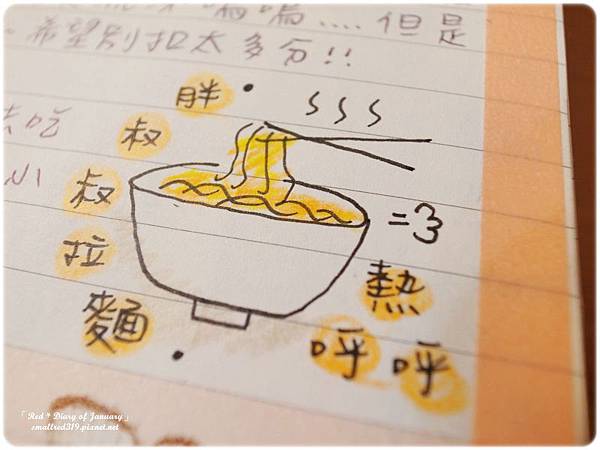 但是
希望別扣太多分!!
去吃
胖叔叔拉麵
熱呼呼
「Red * Diary of January」
smallred319.pixnet.net